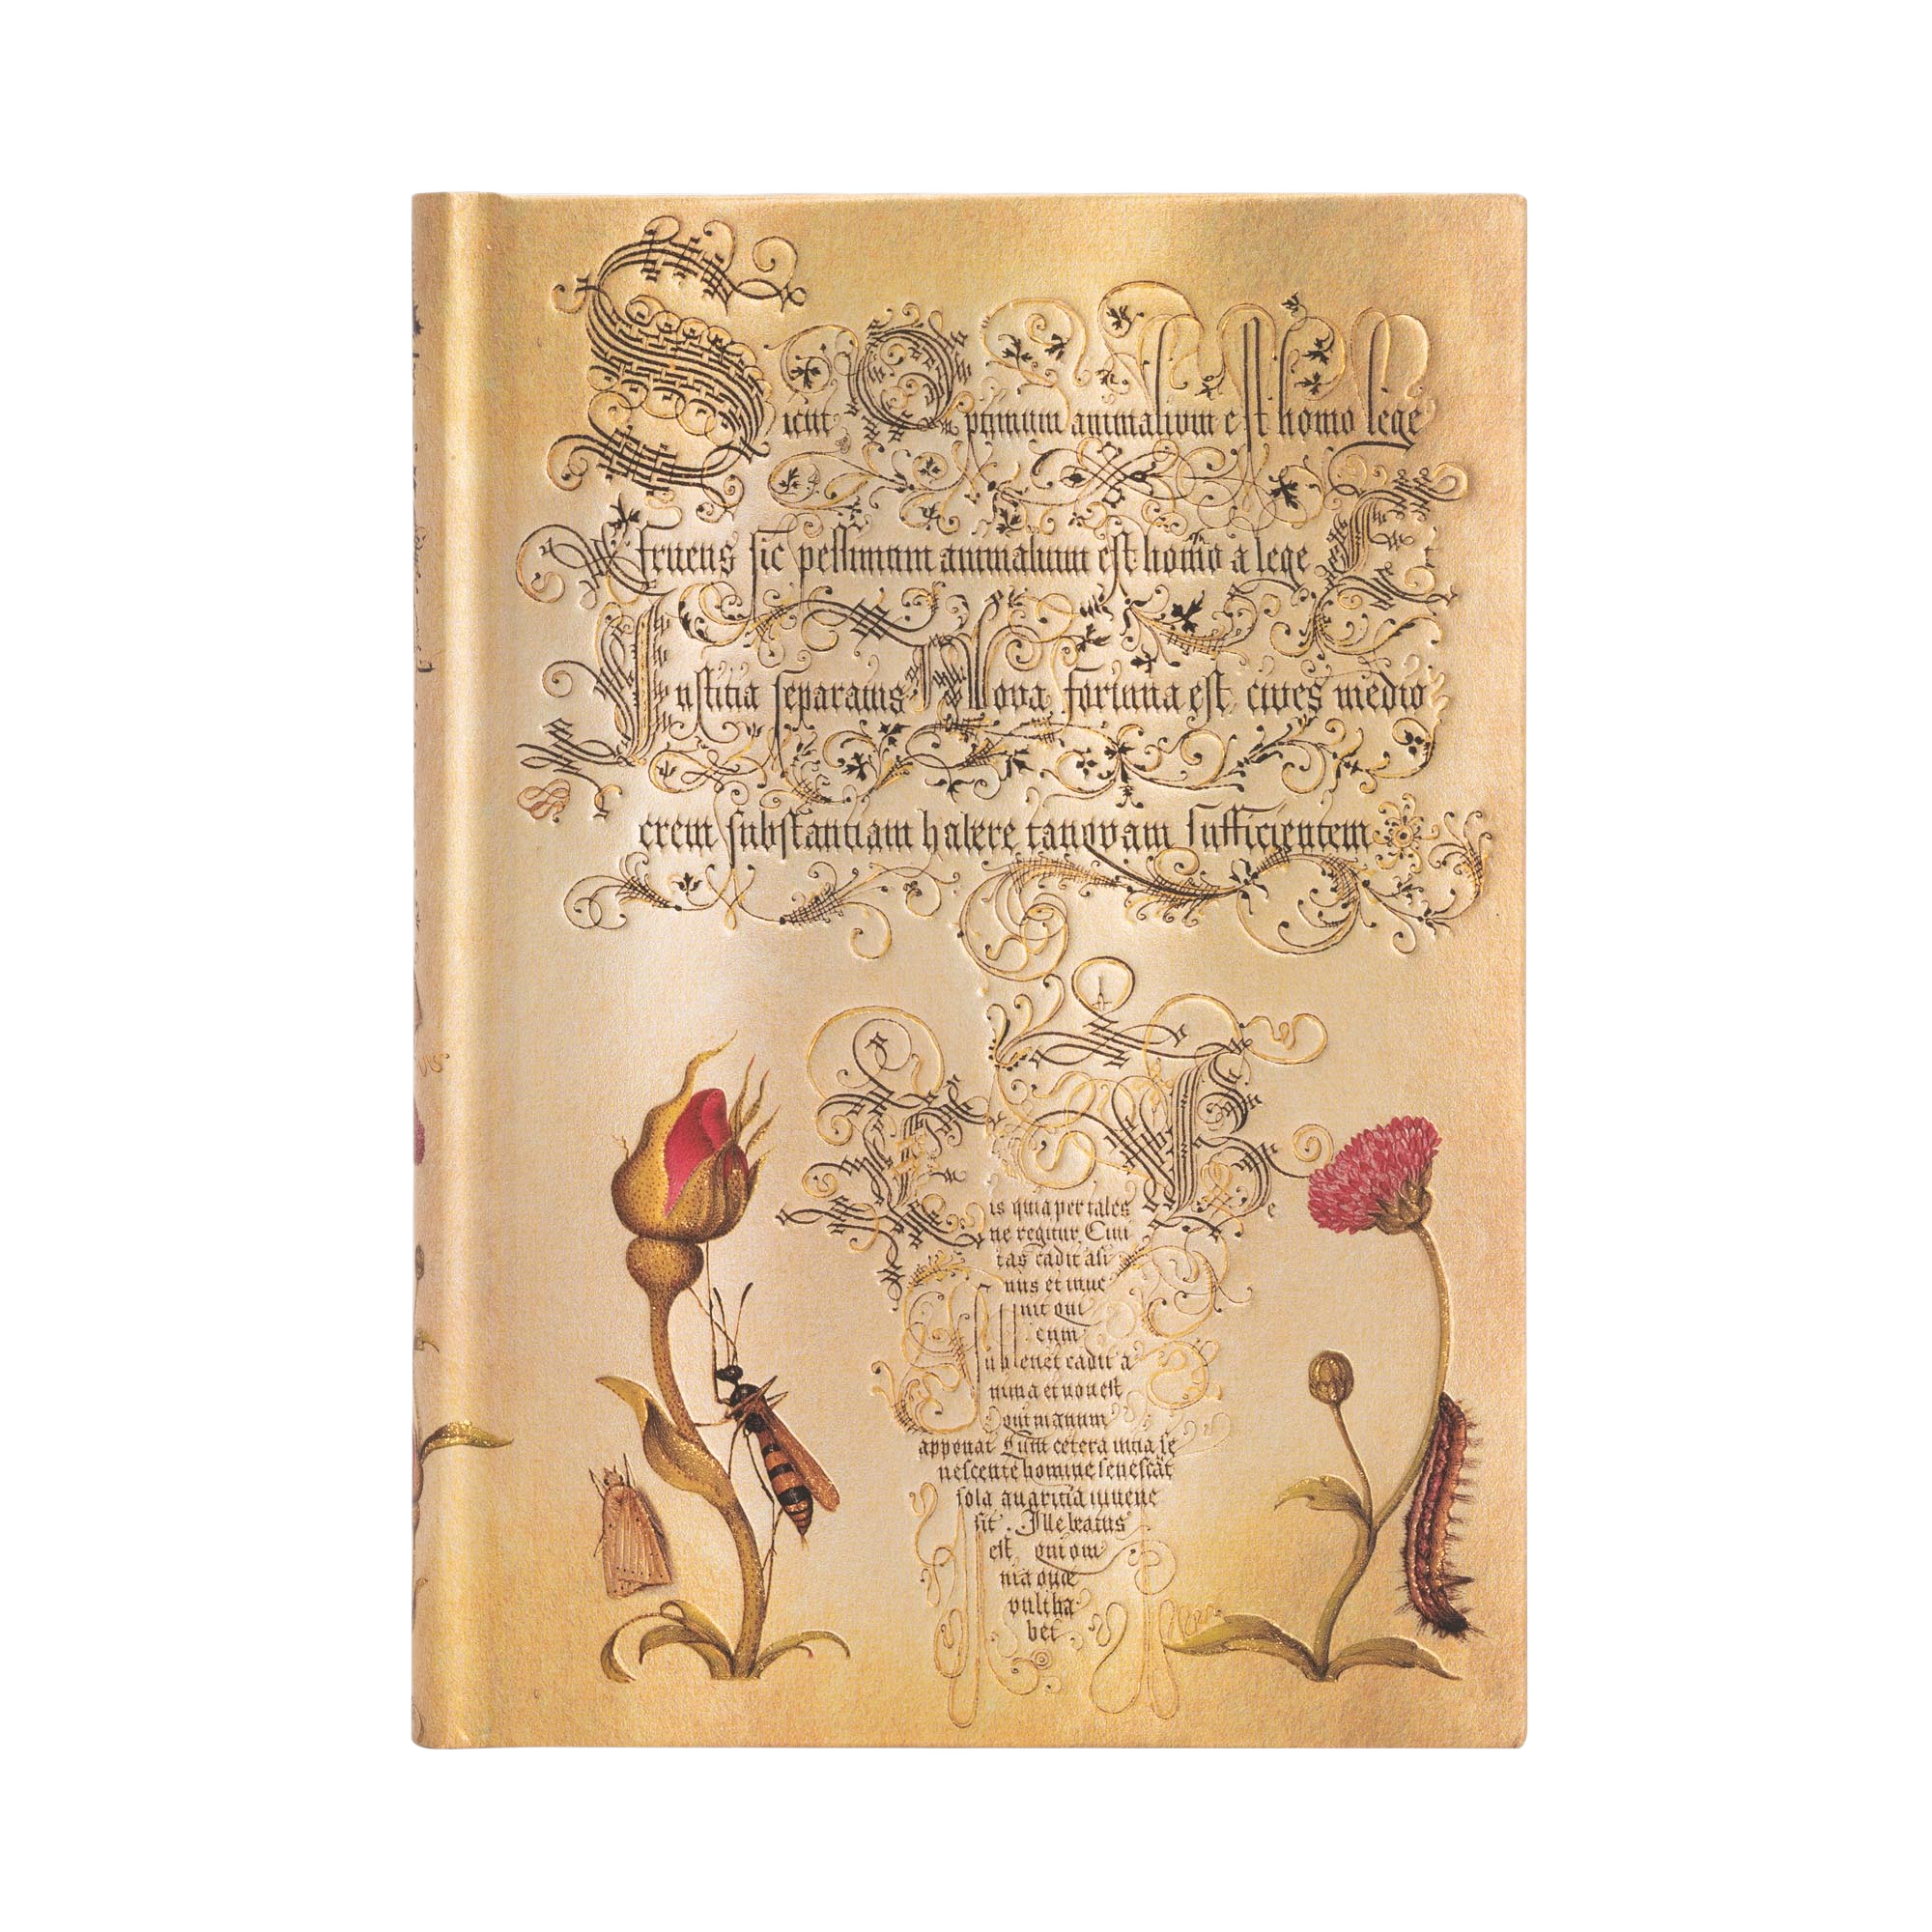 Sicut Optimum animalium est homo lege
fruens sic pessimum animalium est homo a lege Et
Iustitia separatus Bona fortuna est cives medio
crem substantiam habere tanquam sufficientem
is quia per tales
ne regitur Civi
tas cadit asi
nus et inve
nit qui
eum
sublevet cadit a
nima et non est
qui manum
apponat Cum cetera vitia se
nescente homine senescāt
sola avaritia iuvene
sit. Ille beatus
est qui om
nia quæ
vult ha
bet